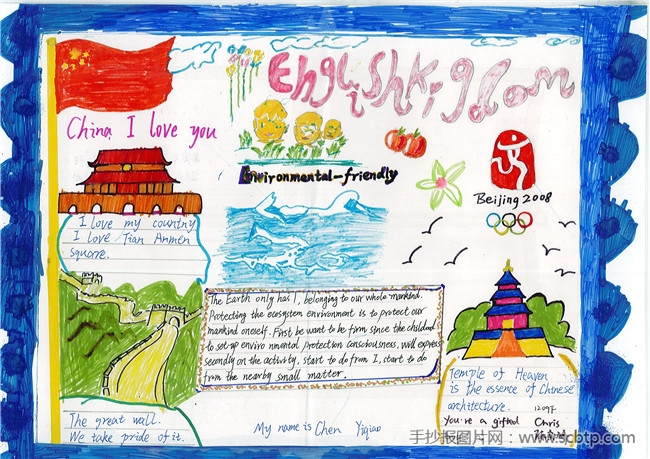 EnglishKigdom
China I love you
Environmental-friendly
Beijing 2008
I love my country
I love Tian Anmen
square.
The Earth only has 1, belonging to our whole mankind.
Protecting the ecosystem environment is to protect our
mankind oneself. First be want to be firm since the childhood
to set up enviro nmental protection consciousness, will express
secondly on the activity, start to do from I, start to do
from the nearby small matter.
Temple of Heaven
is the essence of Chinese
architecture.
12097
You're a gifted Chris
The great wall.
We take pride of it.
My name is Chen Yiqiao
手抄报图片网:www.scbtp.com